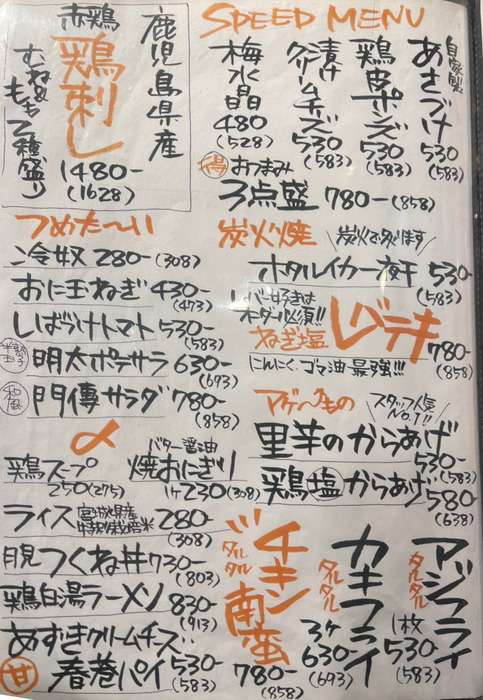 SPEED MENU
自家製
あさづけ 530 (583)
鶏皮ポンズ 530 (583)
漬けクリームチーズ 530 (583)
梅水晶 480 (528)
得 おつまみ
3点盛 780- (858)
鹿児島県産
赤鶏
鶏刺し
むね&もも2種盛り
1480-
(1628)
炭火焼 炭火で炙ります
ホタルイカ一夜干 530-
(583)
レバー好きは
オーダー必須!!
ねぎ塩 レバテキ
780-
(858)
にんにく、ゴマ油 最強!!!
つめた〜い
冷奴 280-(308)
おに玉ねぎ 430-
(473)
しばづけトマト 530-
(583)
半熟玉子 明太ポテサラ 630-
(693)
和風 門傳サラダ 780-
(858)
アゲ〜もの スタッフ人気No.1!!
里芋のからあげ
530-
(583)
鶏塩からあげ 580
(638)
〆
鶏スープ
250(275)
バター醤油
焼おにぎり
1ケ 230(308)
ライス 宮城県産特別栽培米 280-
(308)
月見つくね丼 730-
(803)
鶏白湯ラーメン 830-
(913)
あずきクリームチーズ
甘 春巻パイ 530-
(583)
アジフライ
タルタル
1枚
530-
(583)
カキフライ
タルタル
3ヶ
630-
(693)
チキン南蛮
タルタル
780-
(858)